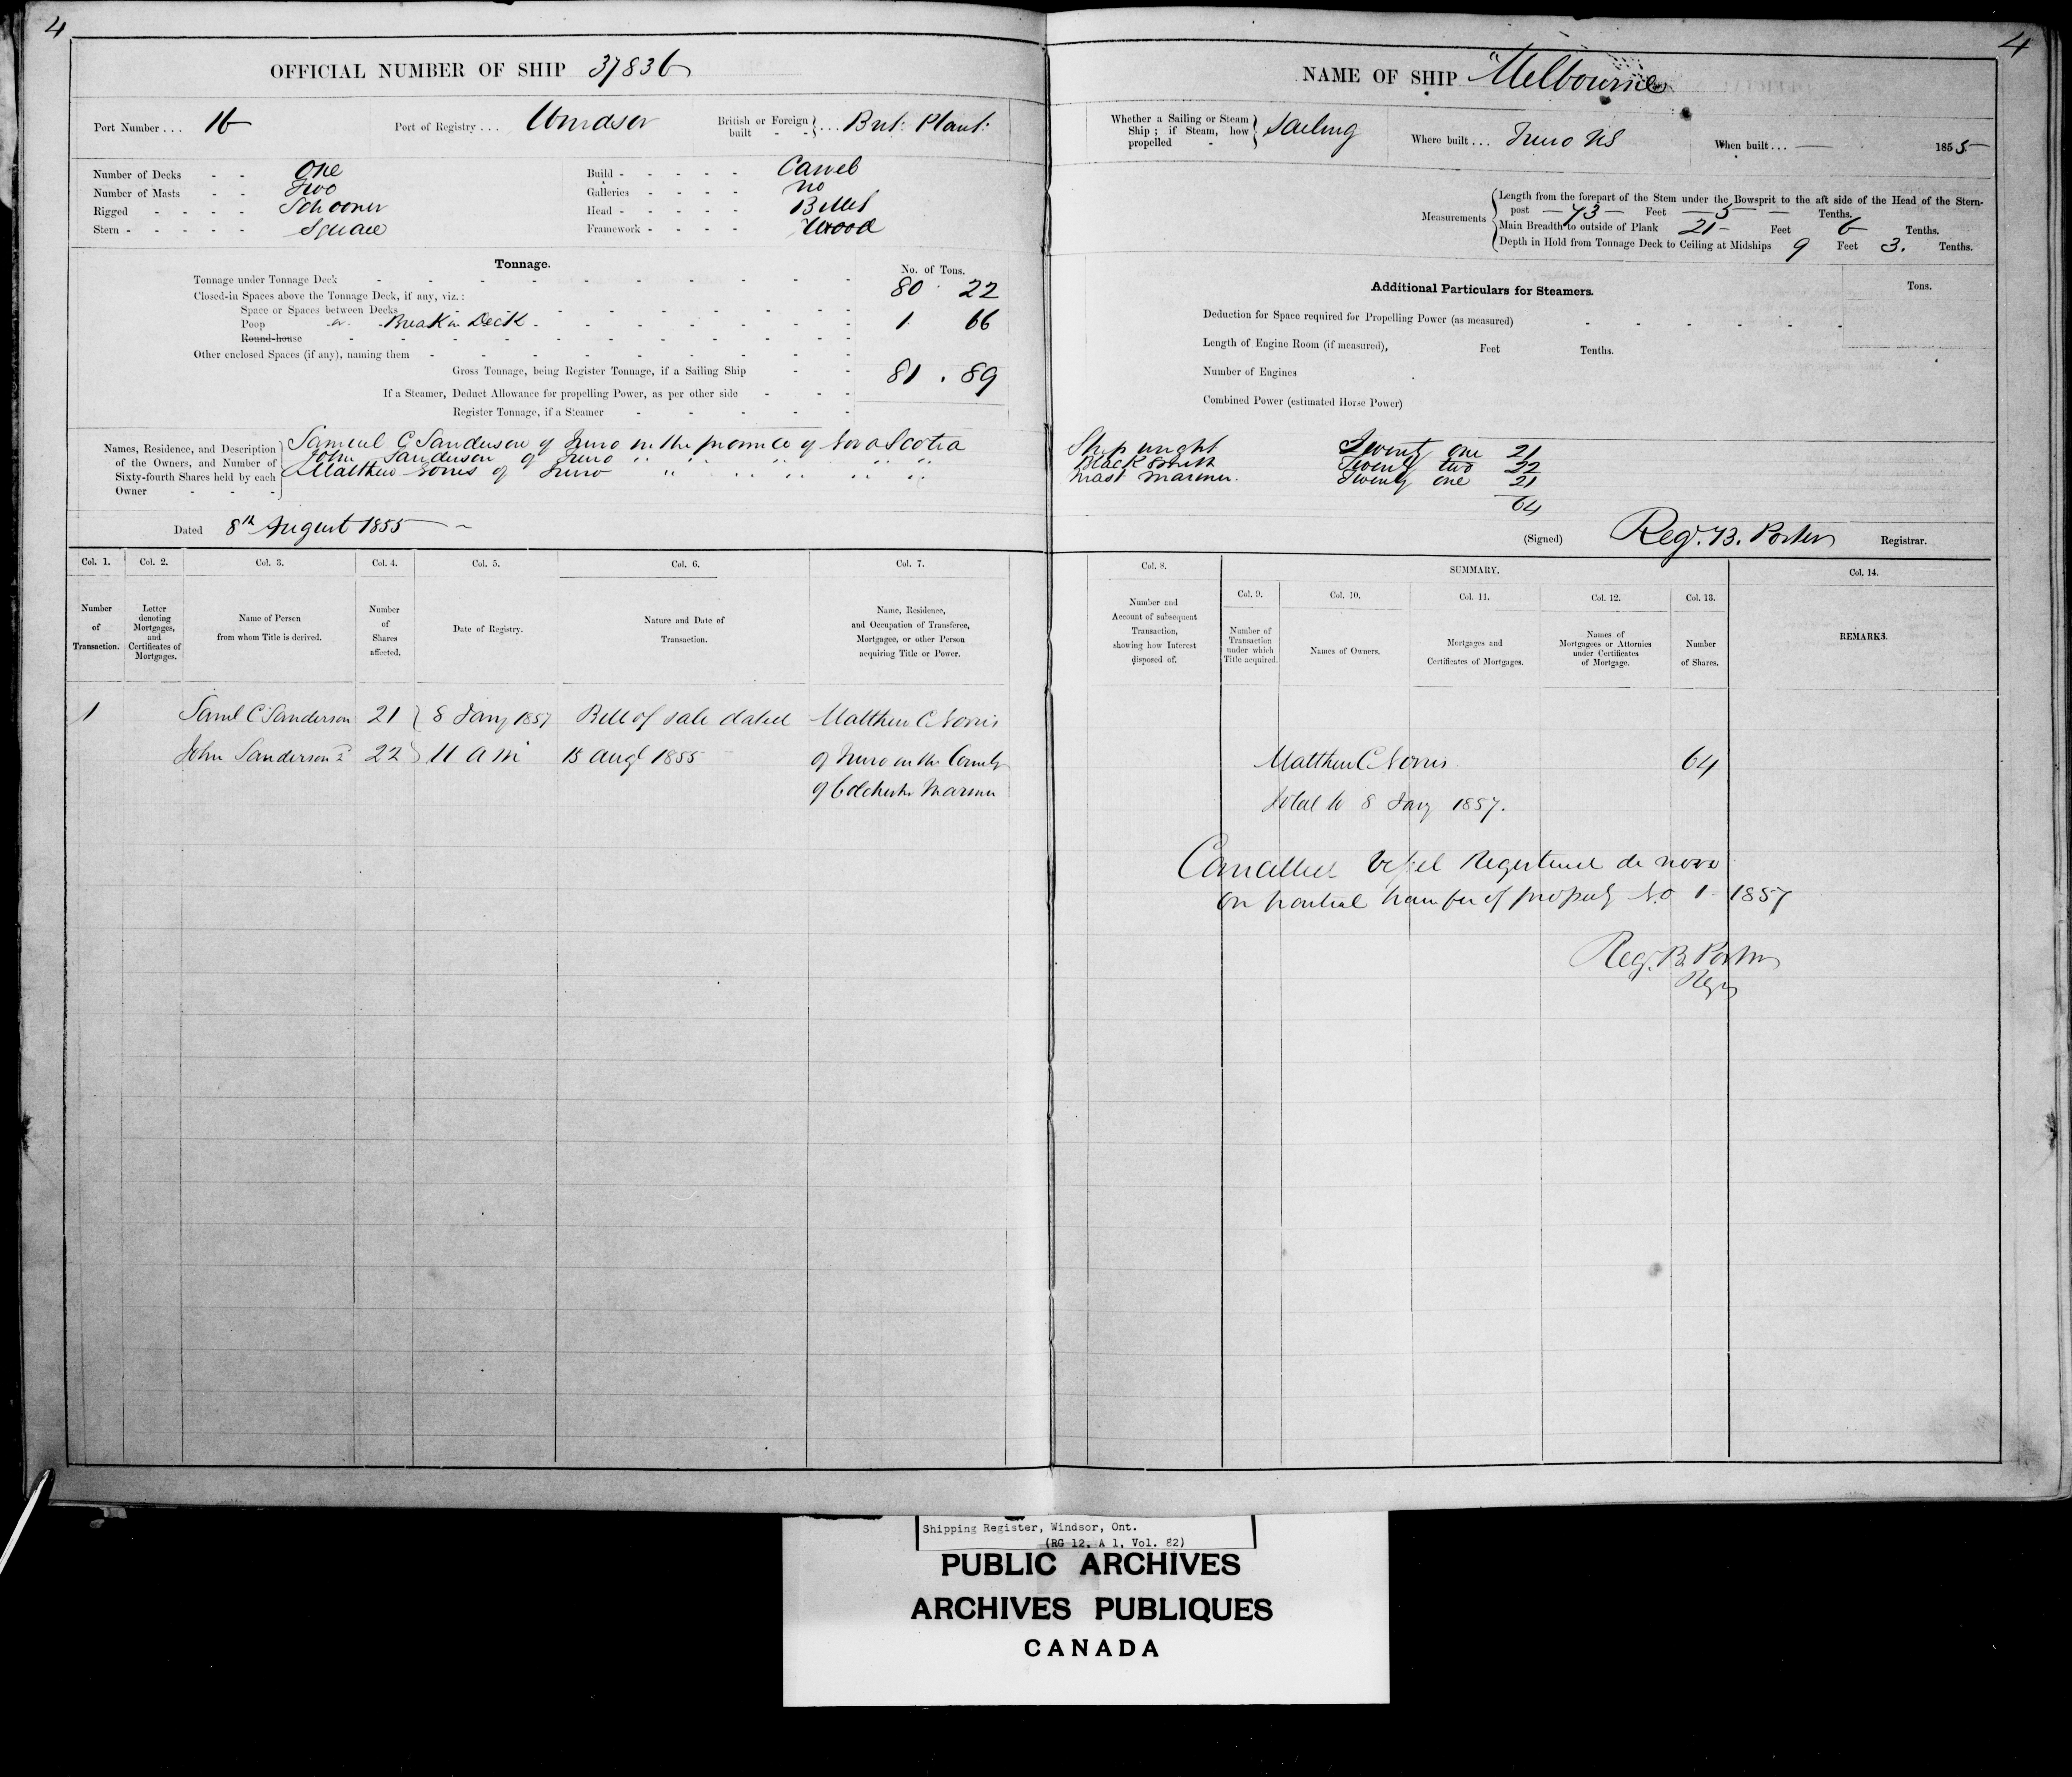 4
OFFICIAL NUMBER OF SHIP 37836
Port Number . . . 16 Port of Registry . . . Windsor British or Foreign built - - } . . . Brit: Plant:
Number of Decks - - One
Number of Masts - - Two
Rigged - - - - Schooner
Stern - - - - - Square
Build - - - - - Carvel
Galleries - - - - no
Head - - - - - Billet
Framework - - - - Wood
Tonnage. No. of Tons.
Tonnage under Tonnage Deck - - - 80 . 22
Closed-in Spaces above the Tonnage Deck, if any, viz.:
Space or Spaces between Decks
Poop or Break in Deck - - - 1 66
Round-house
Other enclosed Spaces (if any), naming them
Gross Tonnage, being Register Tonnage, if a Sailing Ship - - 81 . 89
If a Steamer, Deduct Allowance for propelling Power, as per other side
Register Tonnage, if a Steamer
Names, Residence, and Description of the Owners, and Number of Sixty-fourth Shares held by each Owner - - -
Samuel C Sanderson of Truro in the province of Nova Scotia
John Sanderson of Truro " " " " "
Matthew Norris of Truro " " " " "
Dated 8th August 1855
Col. 1. Col. 2. Col. 3. Col. 4. Col. 5. Col. 6. Col. 7.
Number of Transaction.
Letter denoting Mortgages, and Certificates of Mortgages.
Name of Person from whom Title is derived.
Number of Shares affected.
Date of Registry.
Nature and Date of Transaction.
Name, Residence, and Occupation of Transferee, Mortgagee, or other Person acquiring Title or Power.
1 Saml C Sanderson 21 } 8 Jany 1857 Bill of sale dated Matthew C Norris
John Sanderson 2d 22 } 11 a m 15 Augt 1855 of Truro in the County
of Colchester Mariner
4
NAME OF SHIP "Melbourne
Whether a Sailing or Steam Ship; if Steam, how propelled - } Sailing Where built . . . Truro NS When built . . . 1855
Measurements
Length from the forepart of the Stem under the Bowsprit to the aft side of the Head of the Stern-
post 73 Feet 5 Tenths.
Main Breadth to outside of Plank 21 Feet 6 Tenths.
Depth in Hold from Tonnage Deck to Ceiling at Midships 9 Feet 3. Tenths.
Additional Particulars for Steamers. Tons.
Deduction for Space required for Propelling Power (as measured)
Length of Engine Room (if measured), Feet Tenths.
Number of Engines
Combined Power (estimated Horse Power)
Ship wright Twenty one 21
Black Smith Twenty two 22
Mast Mariner. Twenty one 21
64
(Signed) Reg. B. Porter Registrar.
Col. 8. SUMMARY. Col. 14.
Col. 9. Col. 10. Col. 11. Col. 12. Col. 13.
Number and Account of subsequent Transaction, showing how Interest disposed of.
Number of Transaction under which Title acquired.
Names of Owners.
Mortgages and Certificates of Mortgages.
Names of Mortgagees or Attornies under Certificates of Mortgage.
Number of Shares.
REMARKS.
Matthew C Norris 64
Total to 8 Jany 1857.
Cancelled Vessel Registered de novo
on partial transfer of property No 1 1857
Reg. B. Porter
Regr
Shipping Register, Windsor, Ont.
(RG 12, A 1, Vol. 82)
PUBLIC ARCHIVES
ARCHIVES PUBLIQUES
CANADA